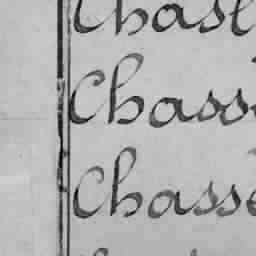 Chast
Chass
Chasse